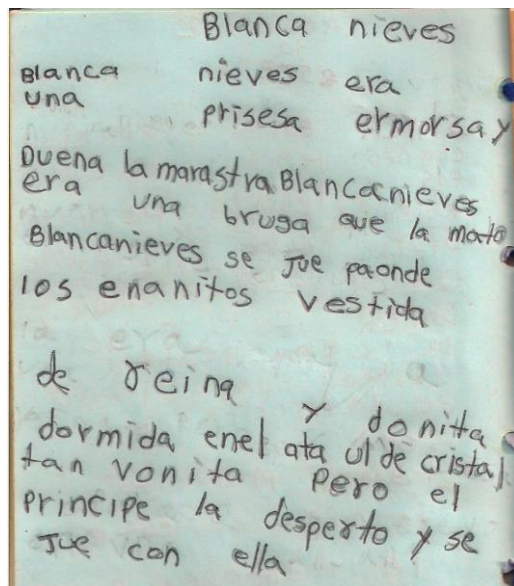 Blanca nieves
Blanca nieves era
una prisesa ermorsa y
Duena la marastra Blancanieves
era una bruga que la mato
Blancanieves se Jue paonde
los enanitos vestida
de reina y donita
dormida enel ata ul de cristal
tan vonita pero el
principe la desperto y se
Jue con ella